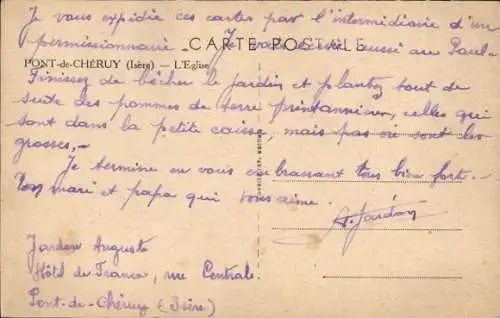 Je vous expédie ces cartes par l'intermédiaire d'un
permissionnaire. Je vais écrire aussi au Paul.
CARTE POSTALE
PONT-de-CHÉRUY (Isère) — L'Eglise
Finissez de bêcher le jardin et plantez tout de
suite des pommes de terre printannières, celles qui
sont dans la petite caisse, mais pas où sont les
grosses.-
Je termine en vous embrassant tous bien fort.-
Ton mari et papa qui vous aime.
A. Jardon
Jardon Auguste
Hôtel de France, rue Centrale.
Pont-de-Chéruy (Isère)